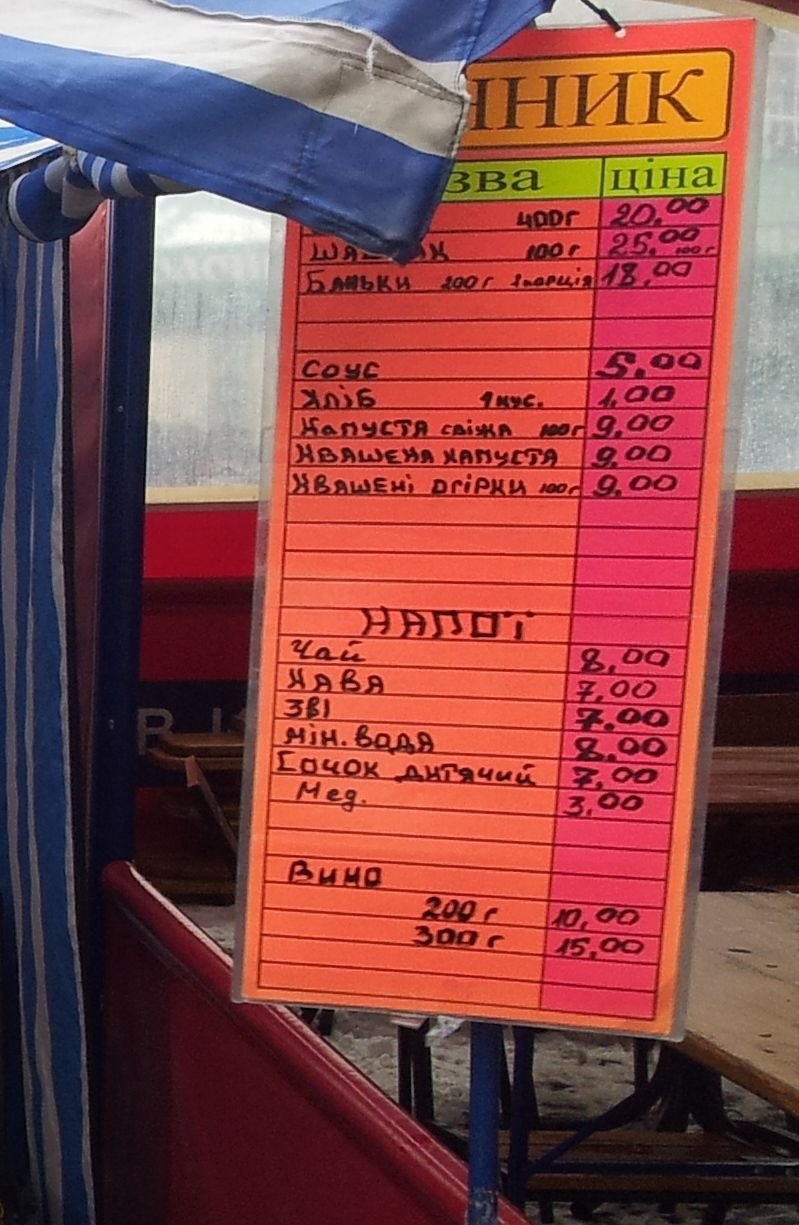 НИК
зва ціна
400г 20.00
100г 25.00 100г
Баньки 200г 1порція 18.00
Соус 5.00
Хліб 1кус. 1.00
Капуста свіжа 100г 9.00
Квашена капуста 9.00
Квашені огірки 100г 9.00
Напої
Чай 8,00
Кава 7,00
3В1 7.00
Мін. вода 8.00
Сочок дитячий 7,00
Мед. 3,00
Вино
200г 10,00
300г 15,00